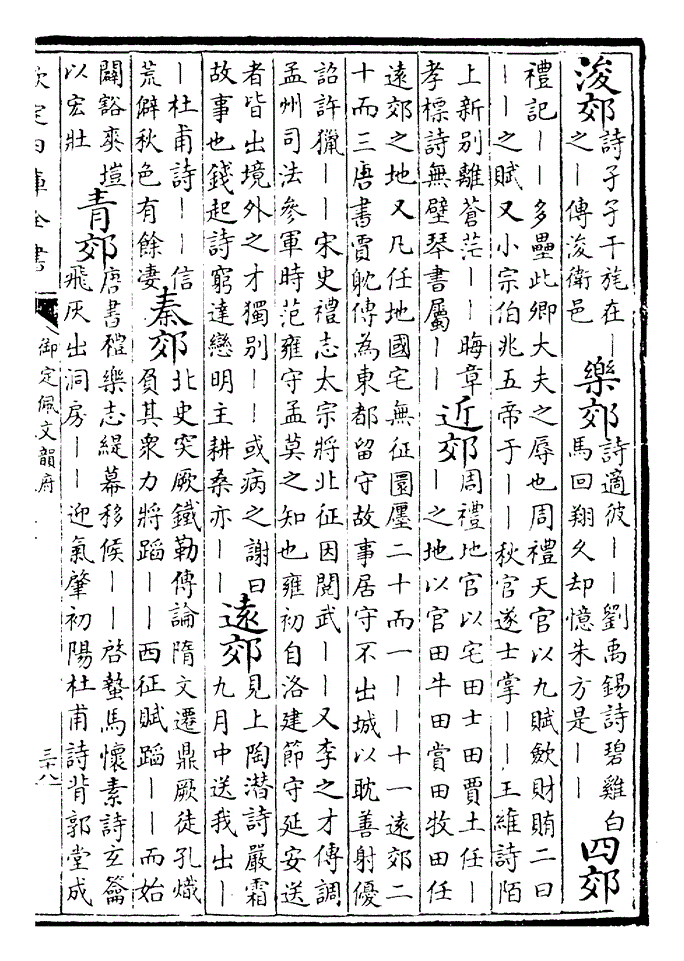 浚郊
詩孑孑干旄在｜
之｜傳浚衛邑
樂郊
詩適彼｜｜劉禹錫詩碧雞白
馬回翔久却憶朱方是｜｜
四郊
禮記｜｜多壘此卿大夫之辱也周禮天官以九賦斂財賄二曰
｜｜之賦又小宗伯兆五帝于｜｜秋官遂士掌｜｜王維詩陌
上新别離蒼茫｜｜晦章
孝標詩無壁琴書屬｜｜
近郊
周禮地官以宅田士田賈土任｜
｜之地以官田牛田賞田牧田任
遠郊之地又凡任地國宅無征園廛二十而一｜｜十一遠郊二
十而三唐書賈耽傳為東都留守故事居守不出城以耽善射優
詔許獵｜｜宋史禮志太宗將北征因閱武｜｜又李之才傳調
孟州司法參軍時范雍守孟莫之知也雍初自洛建節守延安送
者皆出境外之才獨别｜｜或病之謝曰
故事也錢起詩窮達戀明主耕桑亦｜｜
遠郊
見上陶潛詩嚴霜
九月中送我出｜
｜杜甫詩｜｜信
荒僻秋色有餘凄
秦郊
北史突厥鐵勒傳論隋文遷鼎厥徒孔熾
負其衆力將蹈｜｜西征賦蹈｜｜而始
闢豁爽塏
以宏壯
青郊
唐書禮樂志緹幕移候｜｜啓蟄馬懷素詩玄籥
飛灰出洞房｜｜迎氣肇初陽杜甫詩背郭堂成
欽定四庫全書
御定佩文韻府
三十八